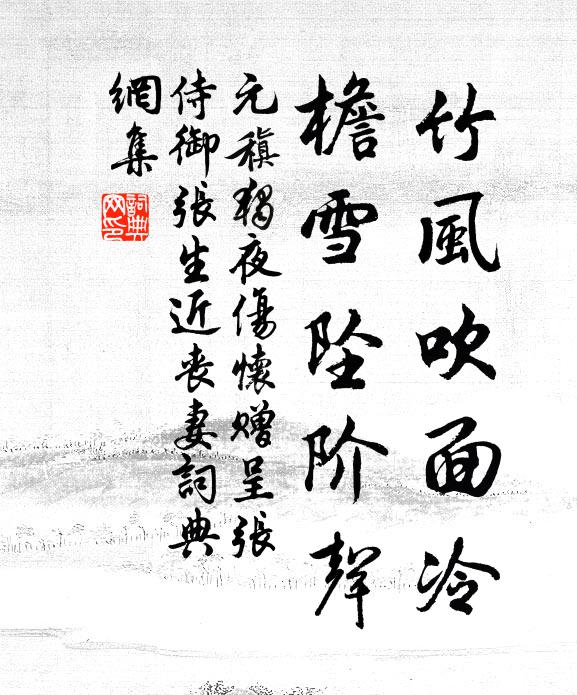 竹風吹面冷
檐雪坠阶聲
元稹獨夜傷懷贈呈張
侍御張生近喪妻詞典
網集
詞典
网印